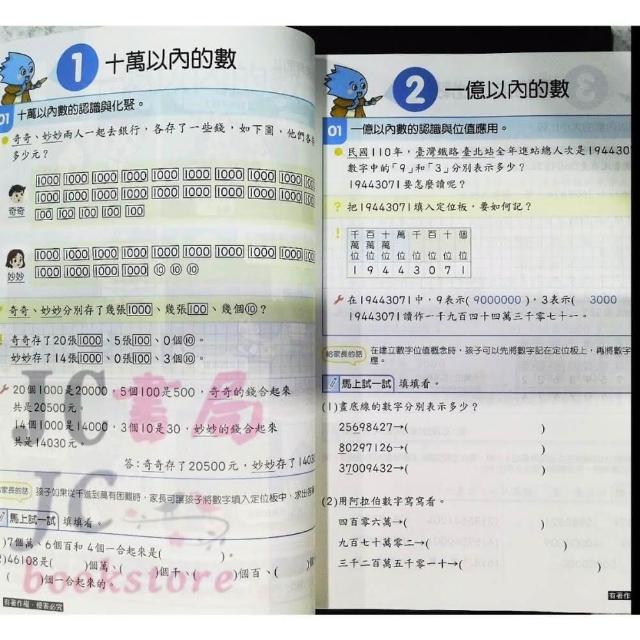 1 十萬以內的數
01 十萬以內數的認識與化聚。
奇奇、妙妙兩人一起去銀行，各存了一些錢，如下圖，他們各
多少元？
1000 1000 1000 1000 1000 1000 1000 1000 1000 1000
1000 1000 1000 1000 1000 1000 1000 1000 1000 1000
100 100 100 100 100
奇奇
1000 1000 1000 1000 1000 1000 1000 1000 1000 1000
1000 1000 1000 1000 10 10 10
妙妙
奇奇、妙妙分別存了幾張1000、幾張100、幾個10？
奇奇存了20張1000、5張100、0個10。
妙妙存了14張1000、0張100、3個10。
20個1000是20000，5個100是500，奇奇的錢合起來
共是20500元。
14個1000是14000，3個10是30，妙妙的錢合起來
共是14030元。
答：奇奇存了20500元，妙妙存了1403
給家長的話 孩子如果從千進到萬有困難時，家長可讓孩子將數字填入定位板中，求出答
馬上試一試 填填看。
)7個萬、6個百和4個一合起來是( )。
)46108是( )個萬、( )個千、( )個百、(
( )個一合起來的。
有著作權．侵害必究
JC書局
JC
bookstore
2 一億以內的數
01 一億以內數的認識與位值應用。
民國110年，臺灣鐵路臺北站全年進站總人次是1944307
數字中的「9」和「3」分別表示多少？
19443071要怎麼讀呢？
? 把19443071填入定位板，要如何記？
! 千萬位 百萬位 十萬位 萬位 千位 百位 十位 個位
1 9 4 4 3 0 7 1
在19443071中，9表示( 9000000 )，3表示( 3000
19443071讀作一千九百四十四萬三千零七十一。
給家長的話 在建立數字位值概念時，孩子可以先將數字記在定位板上，再將數字
應。
馬上試一試 填填看。
(1)畫底線的數字分別表示多少？
25698427→( )
80297126→( )
37009432→( )
(2)用阿拉伯數字寫寫看。
四百零六萬→( )
九百七十萬零二→( )
三千二百萬五千零一十→(
有著